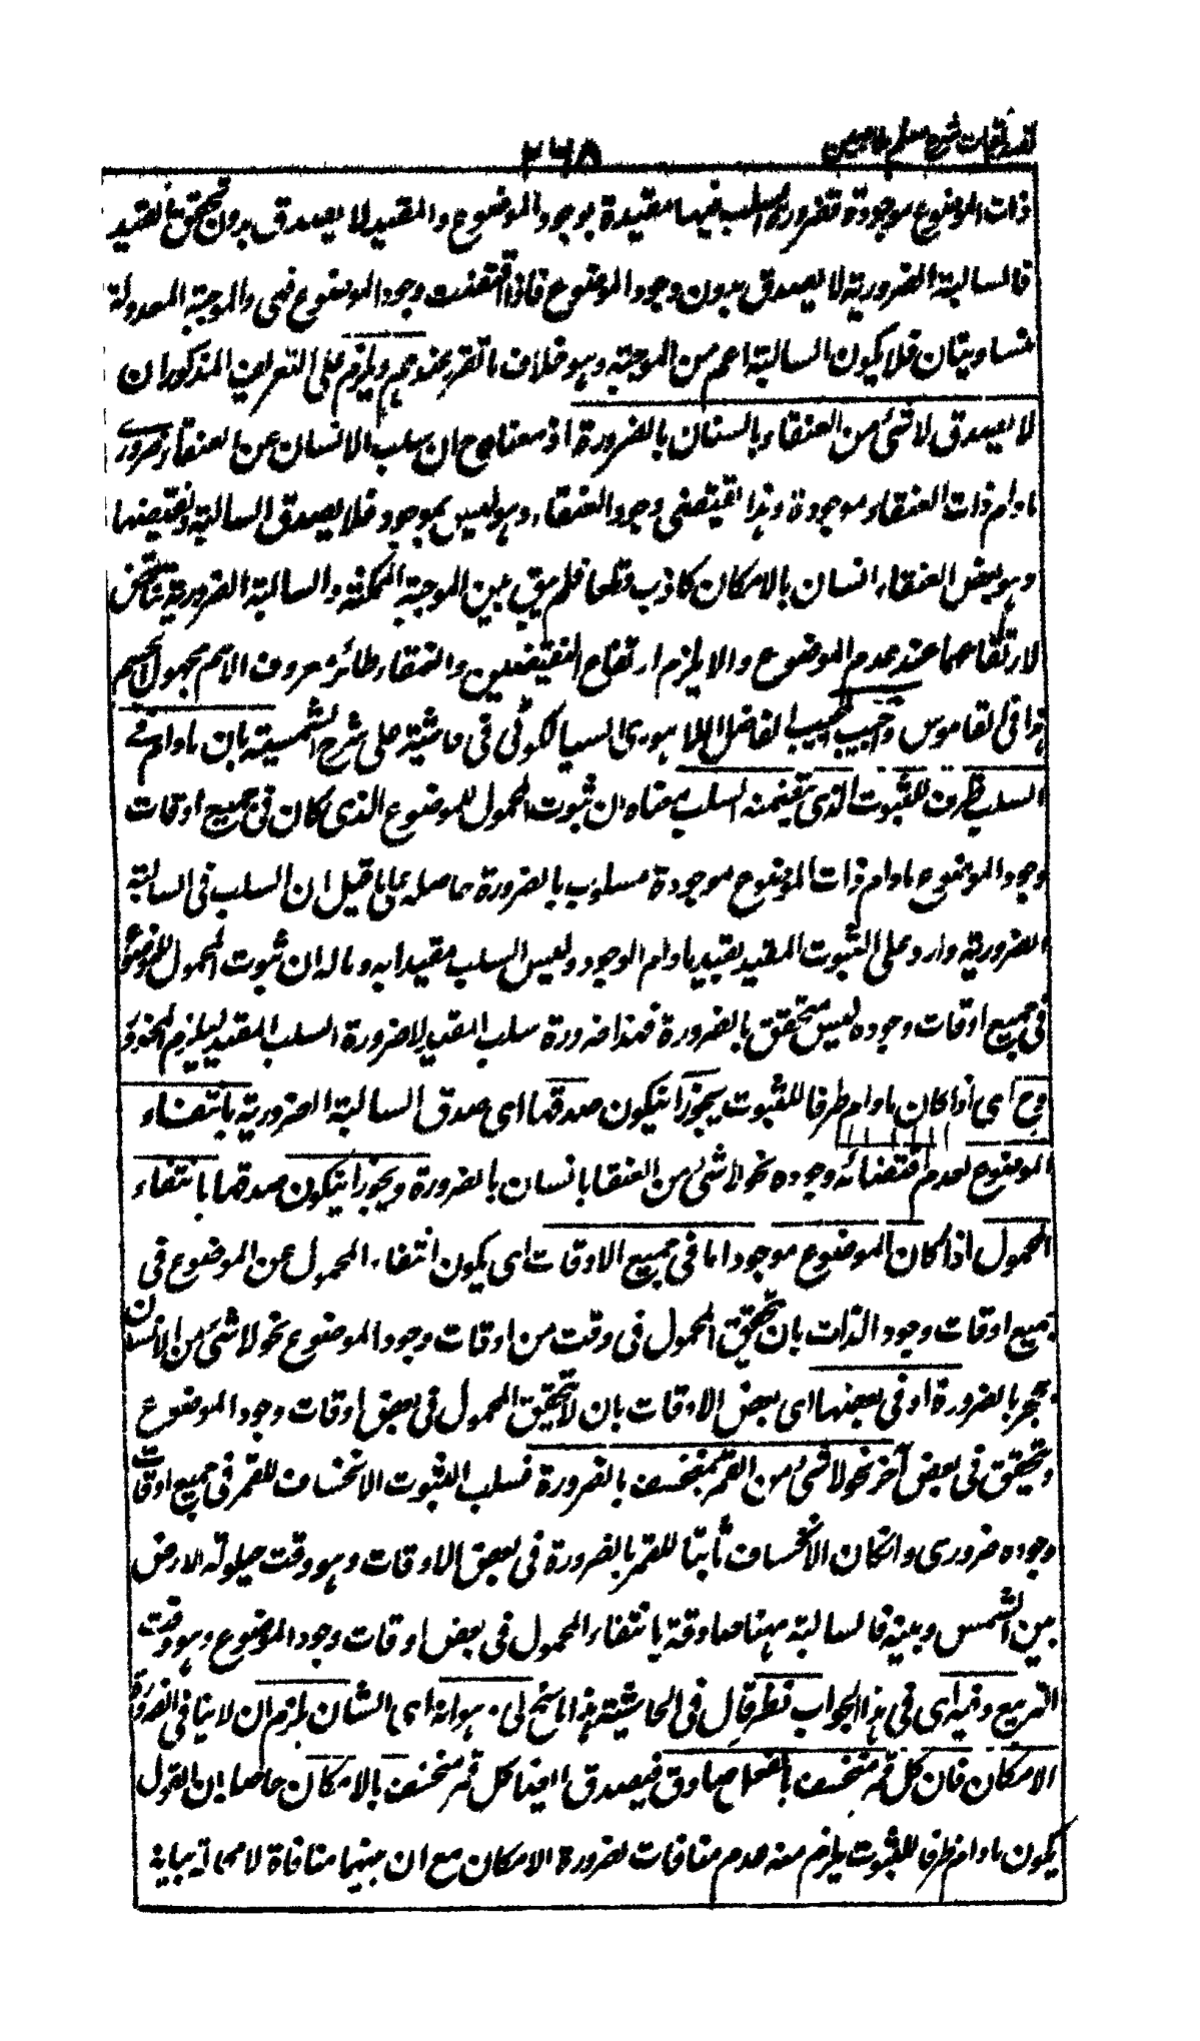 تصدیقات شرح سلم ملا مبین
۲۶۸
ذات الموضوع موجودة فضرورة السلب فيها مقيدة بوجود الموضوع والمقيد لا يصدق بدون تحقق القيد
فالسالبة الضرورية لا يصدق بدون وجود الموضوع فاذا اقتضت وجود الموضوع فهى والموجبة المعدولة
متساويتان فلا يكون السالبة اعم من الموجبة وهو خلاف ما تقرر عندهم ويلزم على التعريف المذكور ان
لا يصدق لا شئ من العنقاء بانسان بالضرورة اذ معناه ح ان سلب الانسان عن العنقاء ضرورى
مادام ذات العنقاء موجودة وهذا يقتضى وجود العنقاء وهو ليس بموجود فلا يصدق السالبة ونقيضها
وهو بعض العنقاء انسان بالامكان كاذب قطعا فلم يبق بين الموجبة الممكنة والسالبة الضرورية تناقض
لارتفاعهما عند عدم الموضوع والا يلزم ارتفاع النقيضين والعنقاء طائر معروف الاسم مجهول الجسم
كذا فى القاموس واجيب المجيب الفاضل اللاهورى السيالكوٹى فى حاشيته على شرح الشمسية بان مادام فى
السلب ظرف للثبوت الذى يتضمنه السلب معناه ان ثبوت المحمول للموضوع الذى كان فى جميع اوقات
وجود الموضوع مادام ذات الموضوع موجودة مسلوب بالضرورة حاصله على ما قيل ان السلب فى السالبة
الضرورية وارد على الثبوت المقيد بقيد مادام الوجود وليس السلب مقيدا به وماله ان ثبوت المحمول للموضوع
فى جميع اوقات وجوده ليس بمتحقق بالضرورة فهذا ضرورة سلب المقيد لا ضرورة السلب المقيد ليلزم المحذور
وح اى اذا كان مادام ظرفا للثبوت يجوز ان يكون صدقها اى صدق السالبة الضرورية بانتفاء
الموضوع لعدم اقتضائه وجوده نحو لا شئ من العنقا بانسان بالضرورة ويجوز ان يكون صدقها بانتفاء
المحمول اذا كان الموضوع موجودا اما فى جميع الاوقات اى يكون انتفاء المحمول عن الموضوع فى
جميع اوقات وجود الذات بان تحقق المحمول فى وقت من اوقات وجود الموضوع نحو لا شئ من الانسان
بحجر بالضرورة او فى بعضها اى بعض الاوقات بان لا تحقق المحمول فى بعض اوقات وجود الموضوع
وتحقق فى بعض آخر نحو لا شئ من القمر بمنخسف بالضرورة فسلب الثبوت الانخساف للقمر فى جميع اوقات
وجوده ضرورى وان كان الانخساف ثابتا للقمر بالضرورة فى بعض الاوقات وهو وقت حيلولة الارض
بين الشمس وبينه فالسالبة ههنا صادقة بانتفاء المحمول فى بعض اوقات وجود الموضوع وهو وقت
التربيع وفيه اى فى هذا الجواب نظر قال فى الحاشية هذا ما سنح لى هو انه اى الشان يلزم ان لا ينافى الضرورة
الامكان فان كل قمر منخسف بالفعل صادق فيصدق ايضا كل قمر منخسف بالامكان حاصله ان القول
يكون مادام ظرفا للثبوت يلزم منه عدم منافات لضرورة الامكان مع ان بينهما منافاة لا محالة بيانه